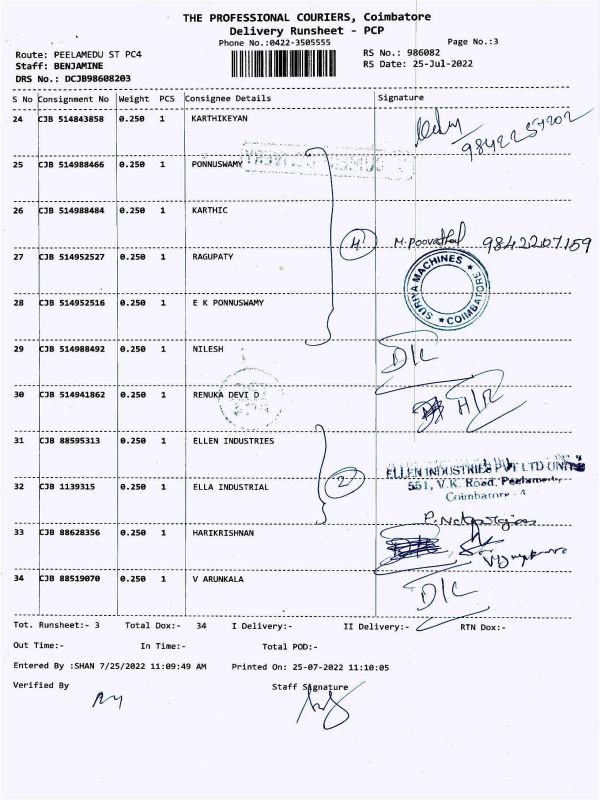 THE PROFESSIONAL COURIERS, Coimbatore
Delivery Runsheet - PCP
Phone No.:0422-3505555
Page No.:3
Route: PEELAMEDU ST PC4
RS No.: 986082
Staff: BENJAMINE
RS Date: 25-Jul-2022
DRS No.: DCJB98608203
S No Consignment No Weight PCS Consignee Details Signature
24 CJB 514843858 0.250 1 KARTHIKEYAN
9842257202
25 CJB 514988466 0.250 1 PONNUSWAMY
26 CJB 514988484 0.250 1 KARTHIC
4 M. Poovathal 9842207159
27 CJB 514952527 0.250 1 RAGUPATY
SURIYA MACHINES ★ COIMBATORE ★
28 CJB 514952516 0.250 1 E K PONNUSWAMY
29 CJB 514988492 0.250 1 NILESH D/L
30 CJB 514941862 0.250 1 RENUKA DEVI D H/R
31 CJB 88595313 0.250 1 ELLEN INDUSTRIES
ELLEN INDUSTRIES PVT LTD UNIT
32 CJB 1139315 0.250 1 ELLA INDUSTRIAL 2
551, V.K. Road, Peelamedu,
Coimbatore - 4
33 CJB 88628356 0.250 1 HARIKRISHNAN
34 CJB 88519070 0.250 1 V ARUNKALA D/L
Tot. Runsheet:- 3 Total Dox:- 34 I Delivery:- II Delivery:- RTN Dox:-
Out Time:- In Time:- Total POD:-
Entered By :SHAN 7/25/2022 11:09:49 AM Printed On: 25-07-2022 11:10:05
Verified By Staff Signature